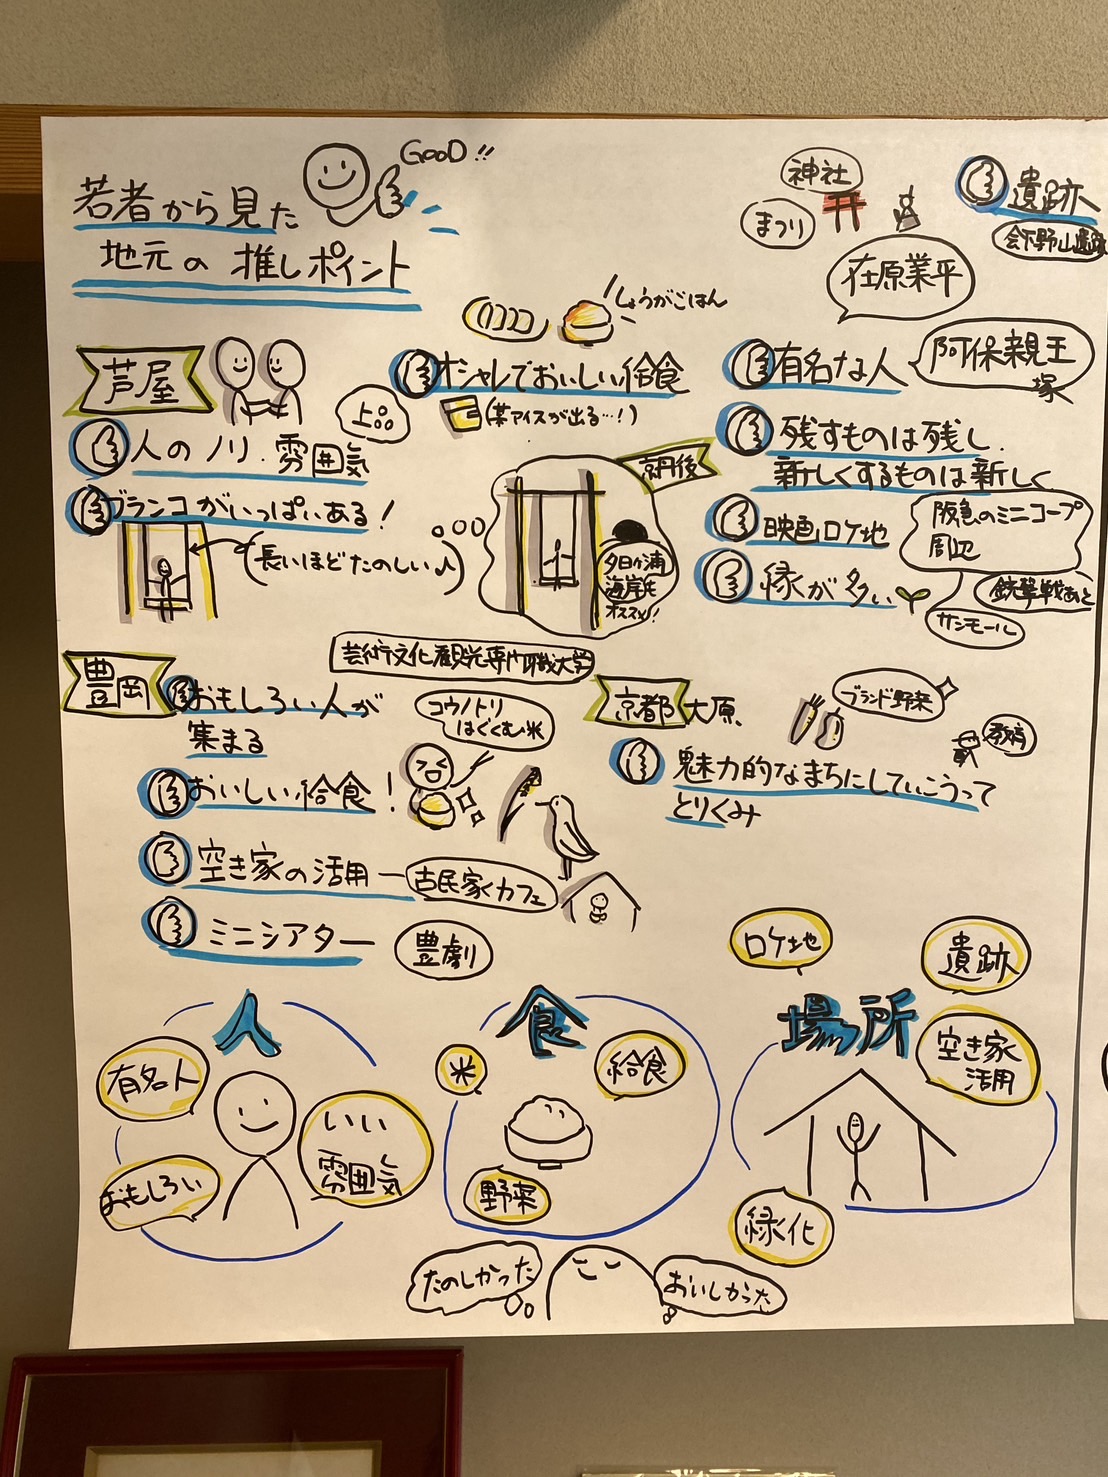 GOOD!!
若者から見た
地元の推しポイント
神社
まつり
遺跡
会下野山遺跡
在原業平
しょうがごはん
芦屋
上品
人のノリ.雰囲気
ブランコがいっぱいある!
(長いほどたのしい♪)
オシャレでおいしい給食
(某アイスが出る…!)
京丹後
夕日ヶ浦
海岸も
オススメ!
有名な人
阿保親王
塚
残すものは残し.
新しくするものは新しく
映画ロケ地
阪急のミニコープ
周辺
緑が多い
銃撃戦あと
サンモール
豊岡
芸術文化観光専門職大学
おもしろい人が
集まる
コウノトリ
はぐくむ米
おいしい給食!
空き家の活用
古民家カフェ
ミニシアター
豊劇
京都大原.
ブランド野菜
魅力的なまちにしていこうって
とりくみ
人
有名人
いい
雰囲気
おもしろい
食
米
給食
野菜
場所
ロケ地
遺跡
空き家
活用
緑化
たのしかった
おいしかった